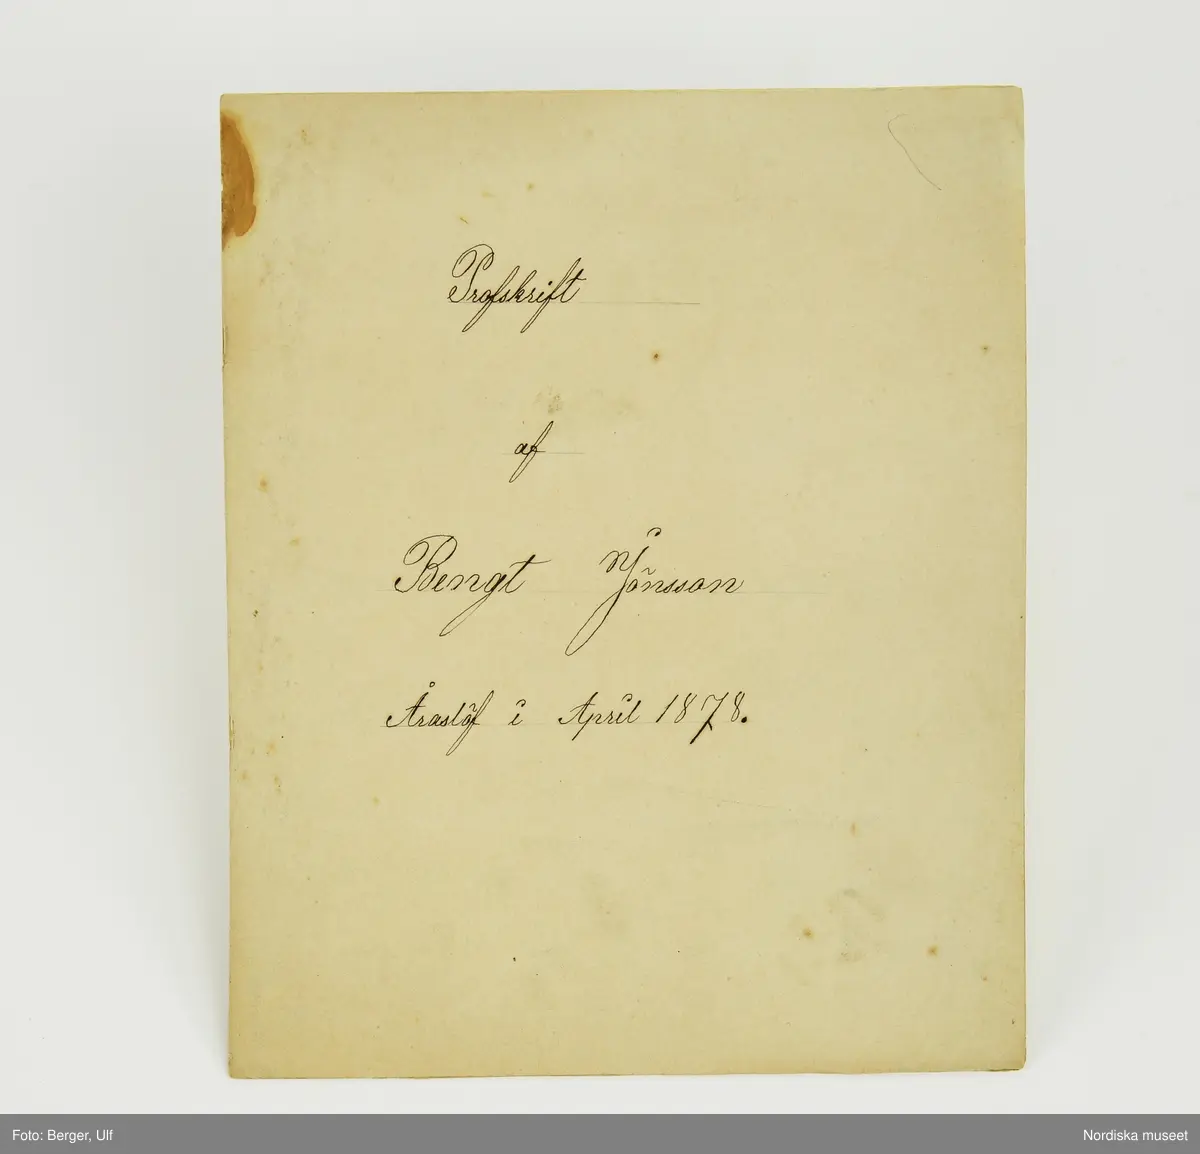 Profskrift
af
Bengt Jönsson
Åraslöf i April 1878.
Foto: Berger, Ulf
Nordiska museet